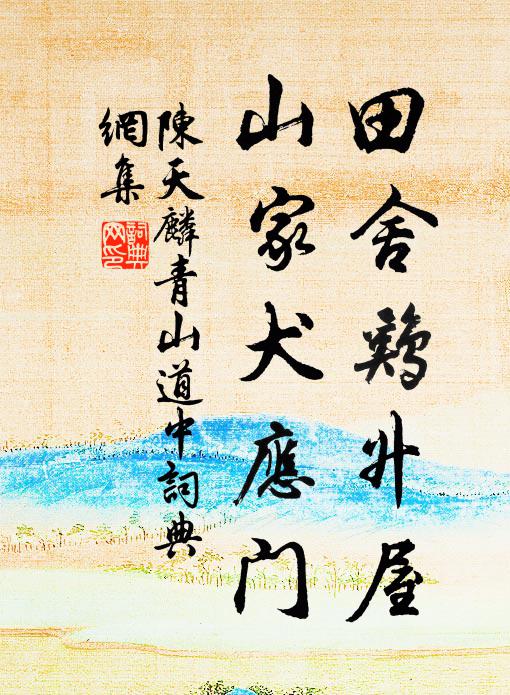 田舍鷄升屋
山家犬應門
陳天麟青山道中詞典
網集
詞典
网印